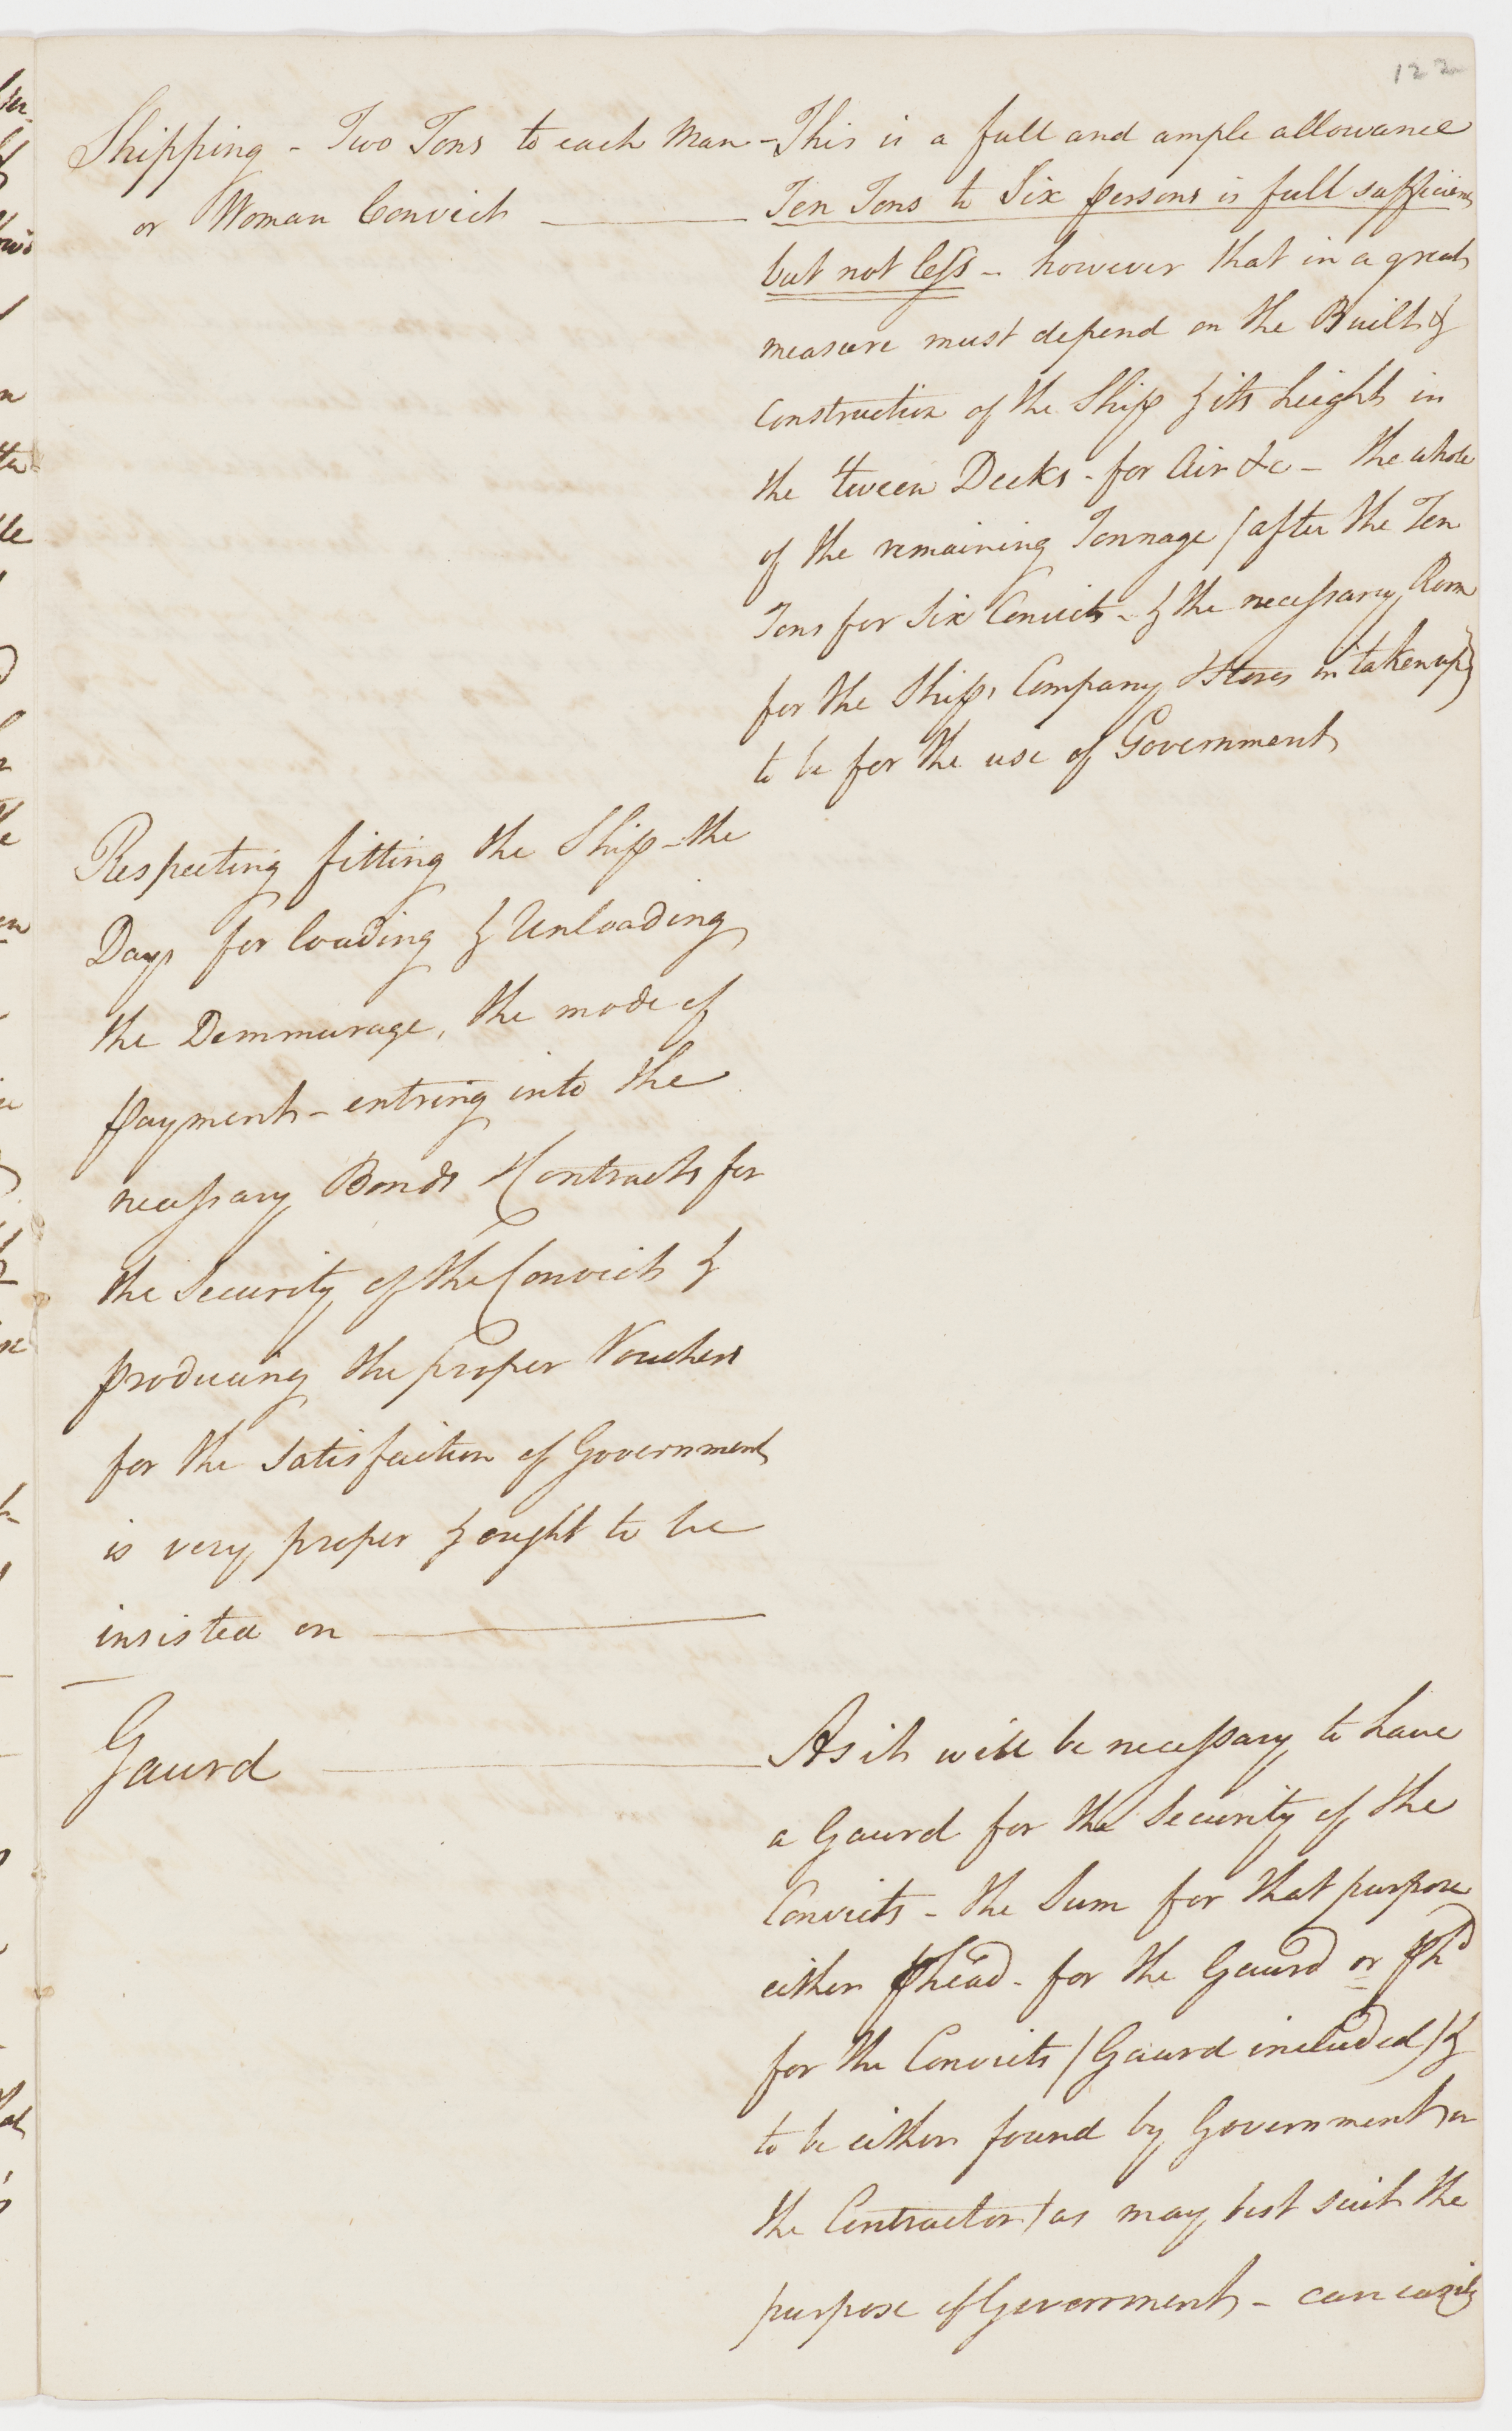 122
Shipping - Two Tons to each Man -
or Woman Convict
This is a full and ample allowance
Ten Tons to Six persons is full sufficient
but not less - however that in a great
measure must depend on the Built &
Construction of the Ship & its height in
the 'tween Decks - for Air &c - the whole
of the remaining Tonnage / after the Ten
Tons for Six Convicts - & the necessary Room
for the Ships Company & Stores is taken up)
to be for the use of Government
Respecting fitting the Ship - the
Days for loading & Unloading
the Demmurage, the mode of
payment - entring into the
necessary Bonds & Contracts for
the Security of the Convicts &
producing the proper Vouchers
for the Satisfaction of Government
is very proper & ought to be
insisted on
Gaurd
As it will be necessary to have
a Gaurd for the Security of the
Convicts - the Sum for that purpose
either p head - for the Gaurd or p hd
for the Convicts / Gaurd included / &
to be either found by Government or
the Contractor / as may best suit the
purpose of Government - can easily